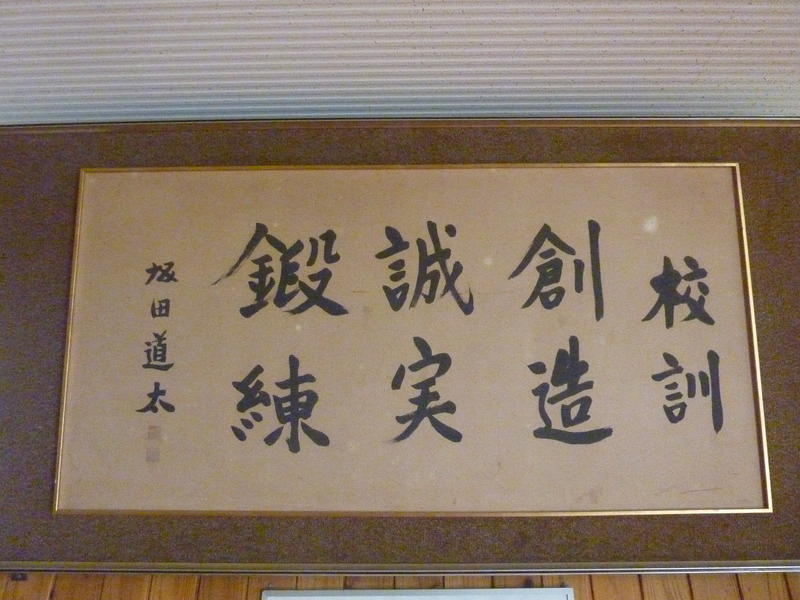 校訓
創造
誠実
鍛練
坂田道太